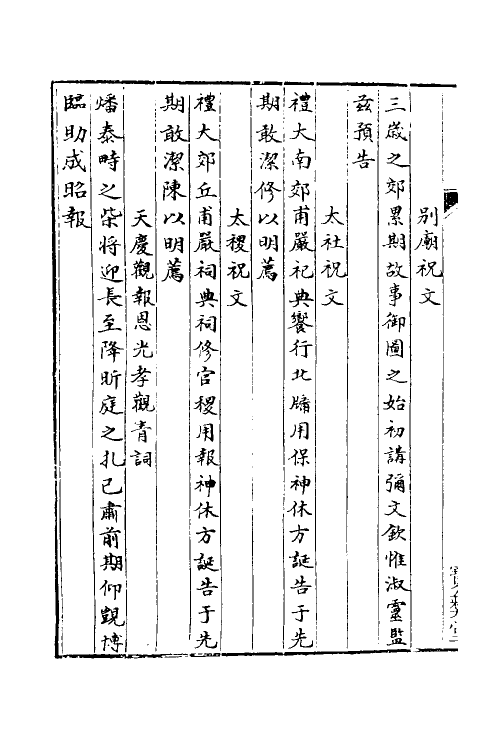 別廟祝文
三歲之郊累期故事御圖之始初講彌文欽惟淑靈監
兹預告
太社祝文
禮大南郊甫嚴祀典饗行北牗用保神休方誕告于先
期敢潔修以明薦
太稷祝文
禮大郊丘甫嚴祠典祠修宫稷用報神休方誕告于先
期敢潔陳以明薦
天慶觀報恩光孝觀青詞
燔泰畤之柴將迎長至降昕庭之札已肅前期仰覬博
臨助成昭報